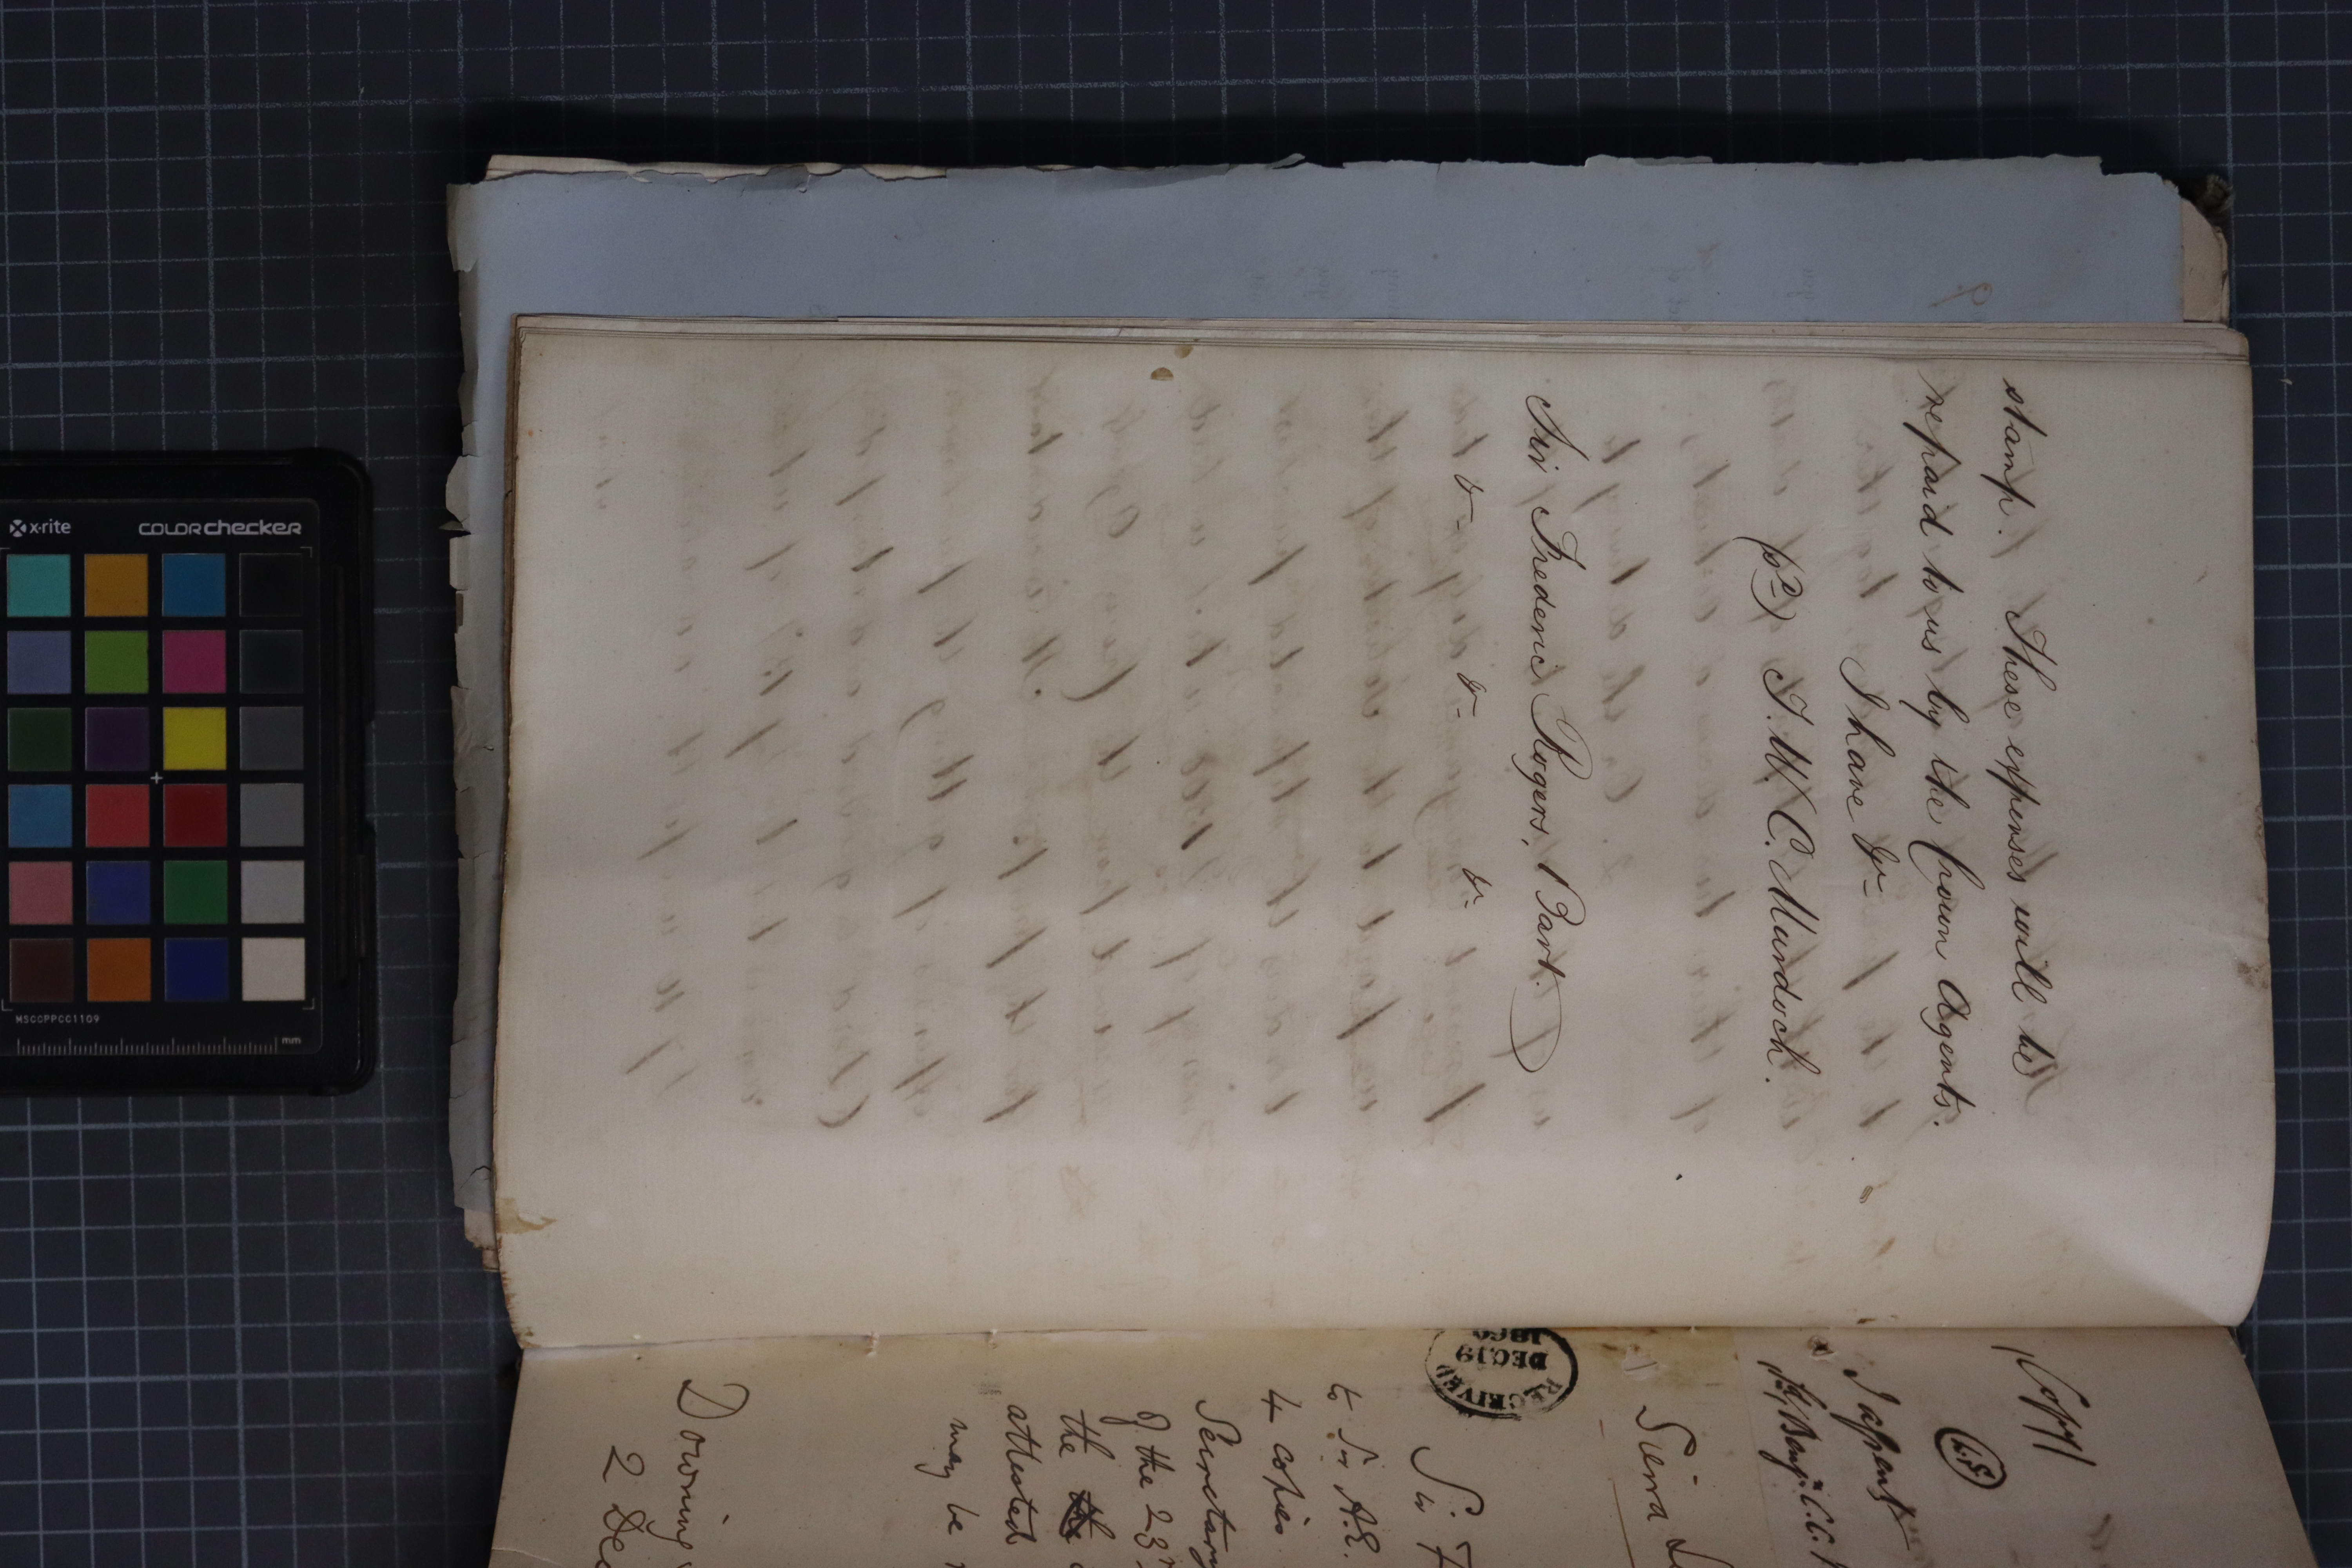 stamp. These expenses will be
repaid to us by the Crown Agents.
I have &c
(sd) T. W. C. Murdoch.
Sir Frederic Rogers, Bart.
&c &c &c
(Copy)
L.S.
Sierra
RECEIVED
DEC 19
1860
Sir F
to Sir A.E.
4 copies
Secretary
of the 23rd
the
attested
may be
Downing
2 Dec
x-rite
COLORchecker
MSCCPPCC1109
mm